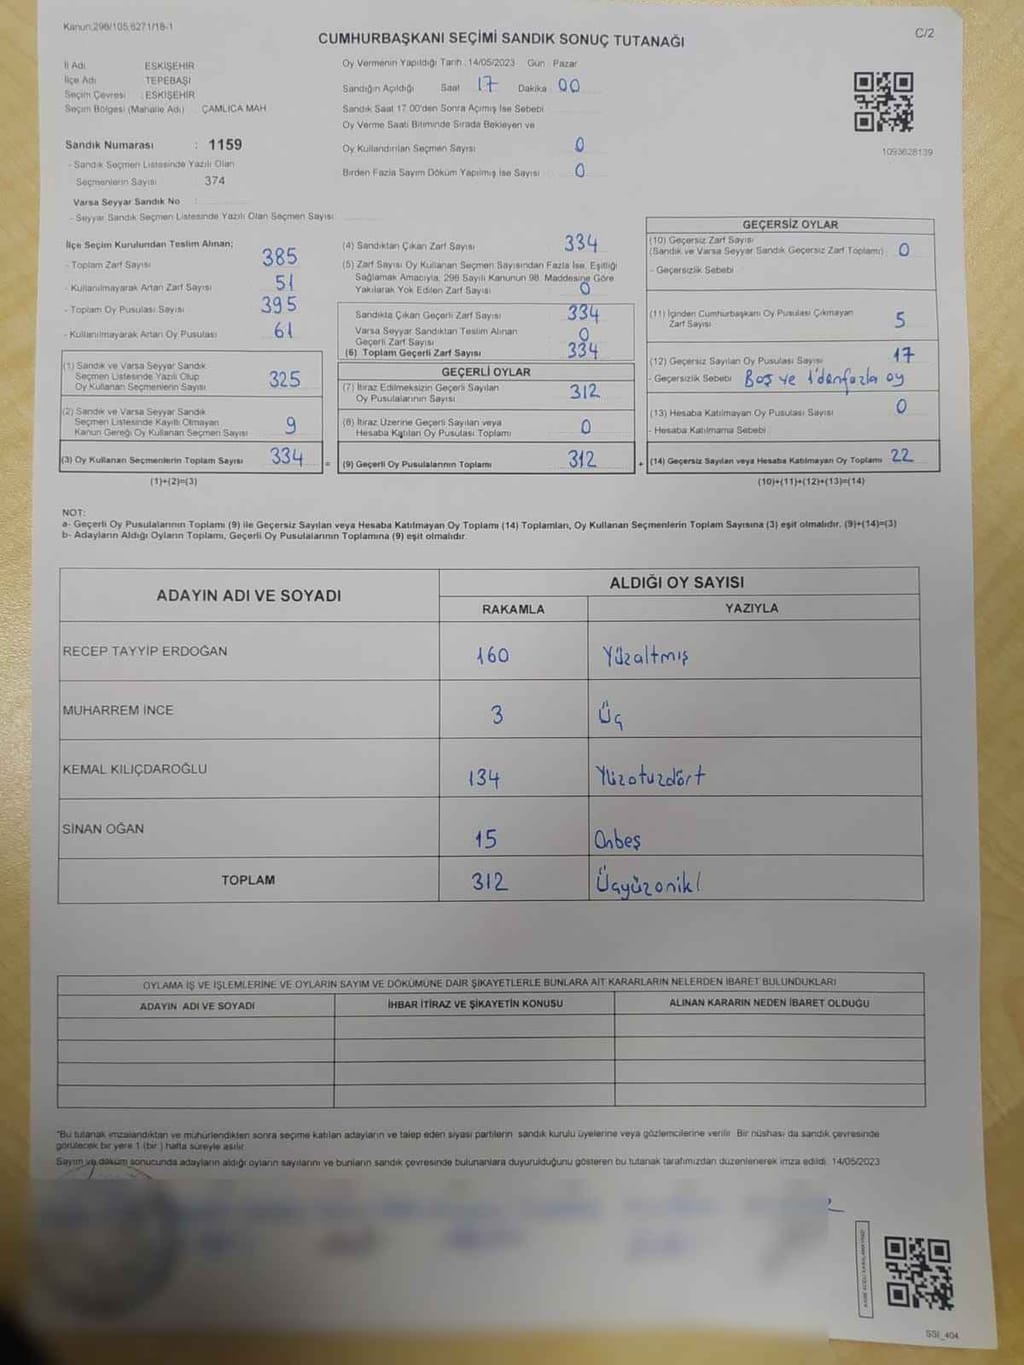 Kanun:298/105,6271/18-1
C/2
CUMHURBAŞKANI SEÇİMİ SANDIK SONUÇ TUTANAĞI
İl Adı ESKİŞEHİR
İlçe Adı TEPEBAŞI
Seçim Çevresi : ESKİŞEHİR
Seçim Bölgesi (Mahalle Adı) ÇAMLICA MAH
Sandık Numarası : 1159
- Sandık Seçmen Listesinde Yazılı Olan
Seçmenlerin Sayısı 374
Varsa Seyyar Sandık No
- Seyyar Sandık Seçmen Listesinde Yazılı Olan Seçmen Sayısı
Oy Vermenin Yapıldığı Tarih : 14/05/2023 Gün : Pazar
Sandığın Açıldığı Saat 17 Dakika 00
Sandık Saat 17.00'den Sonra Açımış İse Sebebi
Oy Verme Saati Bitiminde Sırada Bekleyen ve
Oy Kullandırılan Seçmen Sayısı 0
Birden Fazla Sayım Döküm Yapılmış İse Sayısı 0
1093628139
İlçe Seçim Kurulundan Teslim Alınan;
- Toplam Zarf Sayısı 385
- Kullanılmayarak Artan Zarf Sayısı 51
- Toplam Oy Pusulası Sayısı 395
- Kullanılmayarak Artan Oy Pusulası 61
(1) Sandık ve Varsa Seyyar Sandık
Seçmen Listesinde Yazılı Olup
Oy Kullanan Seçmenlerin Sayısı 325
(2) Sandık ve Varsa Seyyar Sandık
Seçmen Listesinde Kayıtlı Olmayan
Kanun Gereği Oy Kullanan Seçmen Sayısı 9
(3) Oy Kullanan Seçmenlerin Toplam Sayısı 334
(1)+(2)=(3)
(4) Sandıktan Çıkan Zarf Sayısı 334
(5) Zarf Sayısı Oy Kullanan Seçmen Sayısından Fazla İse, Eşitliği
Sağlamak Amacıyla, 298 Sayılı Kanunun 98. Maddesine Göre
Yakılarak Yok Edilen Zarf Sayısı 0
Sandıkta Çıkan Geçerli Zarf Sayısı 334
Varsa Seyyar Sandıktan Teslim Alınan
Geçerli Zarf Sayısı 0
(6) Toplam Geçerli Zarf Sayısı 334
GEÇERLİ OYLAR
(7) İtiraz Edilmeksizin Geçerli Sayılan
Oy Pusulalarının Sayısı 312
(8) İtiraz Üzerine Geçerli Sayılan veya
Hesaba Katılan Oy Pusulası Toplamı 0
=
(9) Geçerli Oy Pusulalarının Toplamı 312
GEÇERSİZ OYLAR
(10) Geçersiz Zarf Sayısı
(Sandık ve Varsa Seyyar Sandık Geçersiz Zarf Toplamı) 0
- Geçersizlik Sebebi
(11) İçinden Cumhurbaşkanı Oy Pusulası Çıkmayan
Zarf Sayısı 5
(12) Geçersiz Sayılan Oy Pusulası Sayısı 17
- Geçersizlik Sebebi Boş ve 1'denfazla oy
(13) Hesaba Katılmayan Oy Pusulası Sayısı 0
- Hesaba Katılmama Sebebi
+
(14) Geçersiz Sayılan veya Hesaba Katılmayan Oy Toplamı 22
(10)+(11)+(12)+(13)=(14)
NOT:
a- Geçerli Oy Pusulalarının Toplamı (9) ile Geçersiz Sayılan veya Hesaba Katılmayan Oy Toplamı (14) Toplamları, Oy Kullanan Seçmenlerin Toplam Sayısına (3) eşit olmalıdır. (9)+(14)=(3)
b- Adayların Aldığı Oyların Toplamı, Geçerli Oy Pusulalarının Toplamına (9) eşit olmalıdır.
ADAYIN ADI VE SOYADI
ALDIĞI OY SAYISI
RAKAMLA YAZIYLA
RECEP TAYYİP ERDOĞAN 160 Yüzaltmış
MUHARREM İNCE 3 Üç
KEMAL KILIÇDAROĞLU 134 Yüzotuzdört
SİNAN OĞAN 15 Onbeş
TOPLAM 312 Üçyüzoniki
OYLAMA İŞ VE İŞLEMLERİNE VE OYLARIN SAYIM VE DÖKÜMÜNE DAİR ŞİKAYETLERLE BUNLARA AİT KARARLARIN NELERDEN İBARET BULUNDUKLARI
ADAYIN ADI VE SOYADI İHBAR İTİRAZ VE ŞİKAYETİN KONUSU ALINAN KARARIN NEDEN İBARET OLDUĞU
*Bu tutanak imzalandıktan ve mühürlendikten sonra seçime katılan adayların ve talep eden siyasi partilerin sandık kurulu üyelerine veya gözlemcilerine verilir. Bir nüshası da sandık çevresinde
görülecek bir yere 1 (bir ) hafta süreyle asılır.
Sayım ve döküm sonucunda adayların aldığı oyların sayılarını ve bunların sandık çevresinde bulunanlara duyurulduğunu gösteren bu tutanak tarafımızdan düzenlenerek imza edildi. 14/05/2023
SSI_404